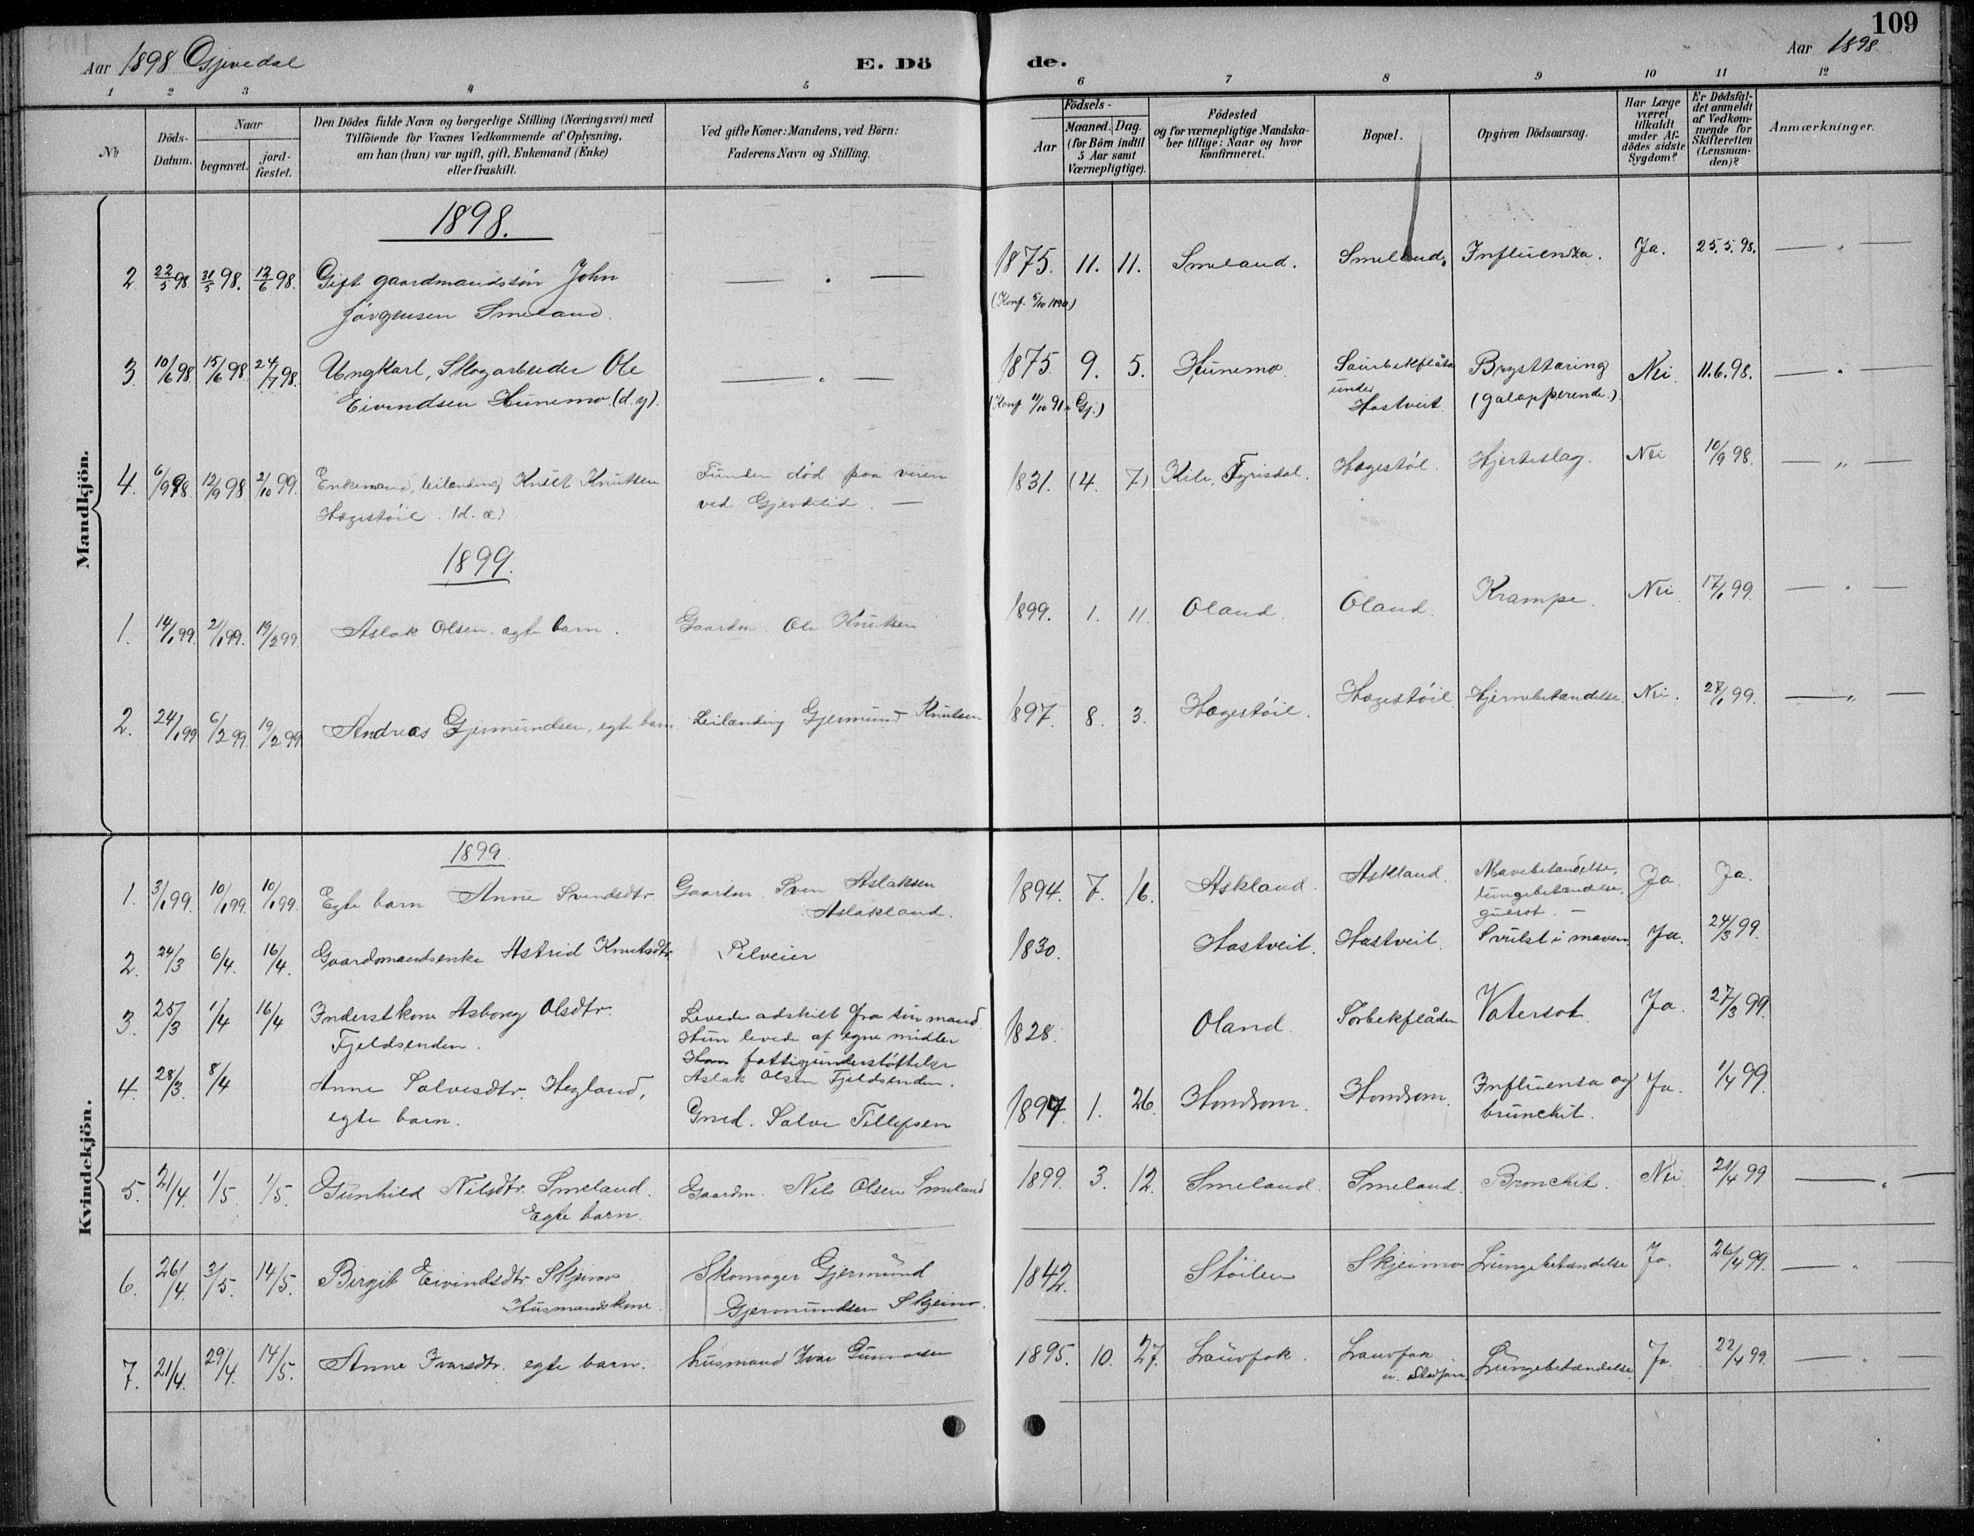 109
Aar 1898 Gjevedal
E. Dö de.
Aar 1898
1 2 3 4 5 6 7 8 9 10 11 12
No
Döds-
Datum.
Naar
begravet.
jord-
fæstet.
Den Dödes fulde Navn og borgerlige Stilling (Næringsvei) med
Tilföiende for Voxnes Vedkommende af Oplysning,
om han (hun) var ugift, gift, Enkemand (Enke)
eller fraskilt.
Ved gifte Koner: Mandens, ved Börn:
Faderens Navn og Stilling.
Födsels-
Aar
Maaned. Dag.
(for Börn indtil
5 Aar samt
Værnepligtige).
Födested
og for værnepligtige Mandska-
ber tillige: Naar og hvor
konfirmeret.
Bopæl.
Opgiven Dödsaarsag.
Har Læge
været
tilkaldt
under Af-
dödes sidste
Sygdom?
Er Dödsfal-
det anmeldt
af Vedkom-
mende for
Skifteretten
(Lensman-
den)?
Anmærkninger.
Mandkjön.
1898.
2 22/5 98 31/5 98. 12/6 98. Gift gaardmandssön John — " — 1875. 11. 11. Smeland. Smeland. Influenza. Ja. 25.5.98. — " —
Jörgensen Smeland. (Konf. 5/10 1890)
3 10/6 98 15/6 98 24/7 98. Ungkarl, Skogarbeider Ole — " — 1875. 9. 5. Hunemo. Saurbekflåten Brysttæring Nei. 11.6.98. — " —
Eivindsen Hunemo (d.y). (Konf. 11/10 91 Gj.) under Hastveit (galopperende.)
4. 6/9 98. 12/9 98 2/10 99. Enkemand, leilænding Knut Knutsen Funden död paa veien 1831. (4. 7) Kile, Fyrisdal. Hægestöl. Hjerteslag. Nei 10/9 98. — " —
Hægestöil. (d. æ) ved Gjevdelid. —
1899.
1. 14/1 99. 2/1 99. 19/2 99 Aslak Olsen, egte barn. Gaardm. Ole Knutsen 1899. 1. 11. Oland. Oland. Krampe. Nei 17/1 99. — " —
2. 24/1 99 6/2 99 19/2 99 Andreas Gjermundsen, egte barn. Leilænding Gjermund Knutsen 1897. 8. 3. Hægestöil. Hægestöil. Hjernebetændelse. Nei. 27/1 99. — " —
Kvindekjön.
1899.
1. 3/1 99. 10/1 99. 10/1 99 Egte barn Anne Svendsdtr. Gaardm. Sven Aslaksen 1894. 7. 16. Askland. Askland. Mavebetændelse, Ja. Ja.
Aslakland. lungebetændelse,
gulsot. —
2. 24/3 6/4. 16/4. Gaardmandsenke Astrid Knutsdtr. Pilveier 1830. Hastveit. Hastveit. Svulst i maven. Ja. 24/3 99.
3. 25/3 1/4 16/4 Inderstkone Asborg Olsdtr. Levede adskilt fra sin mand. 1828. Oland. Sorbekflåden Vatersot. Ja. 27/3 99.
Fjeldsenden. Hun levede af egne midler
Han fattigunderstöttelse
Aslak Olsen Fjeldsenden.
4. 28/3. 8/4 Anne Salvesdtr. Hegland, Gmd. Salve Tellefsen 1897. 1. 26. Homdrom. Homdrom. Influensa og Ja. 1/4 99.
egte barn. brunchit.
5. 21/4. 1/5 1/5. Gunhild Nilsdtr. Smeland. Gaardm. Nils Olsen Smeland 1899. 3. 12. Smeland. Smeland. Bronchit. Nei. 21/4 99 — " —
Egte barn.
6. 26/4. 3/5. 14/5. Birgit Eivindsdtr. Skjeimo Skomager Gjermund 1842. Stöilen Skjeimo Lungebetændelse Ja. 26/4 99. — " —
Husmandskone. Gjermundsen Skjeimo.
7. 21/4. 29/4. 14/5. Anne Ivarsdtr. egte barn. husmand Ivar Gunnarsen 1895. 10. 27. Lauvfok. Lauvfok Lungebetændelse. Ja. 22/4 99. — " —